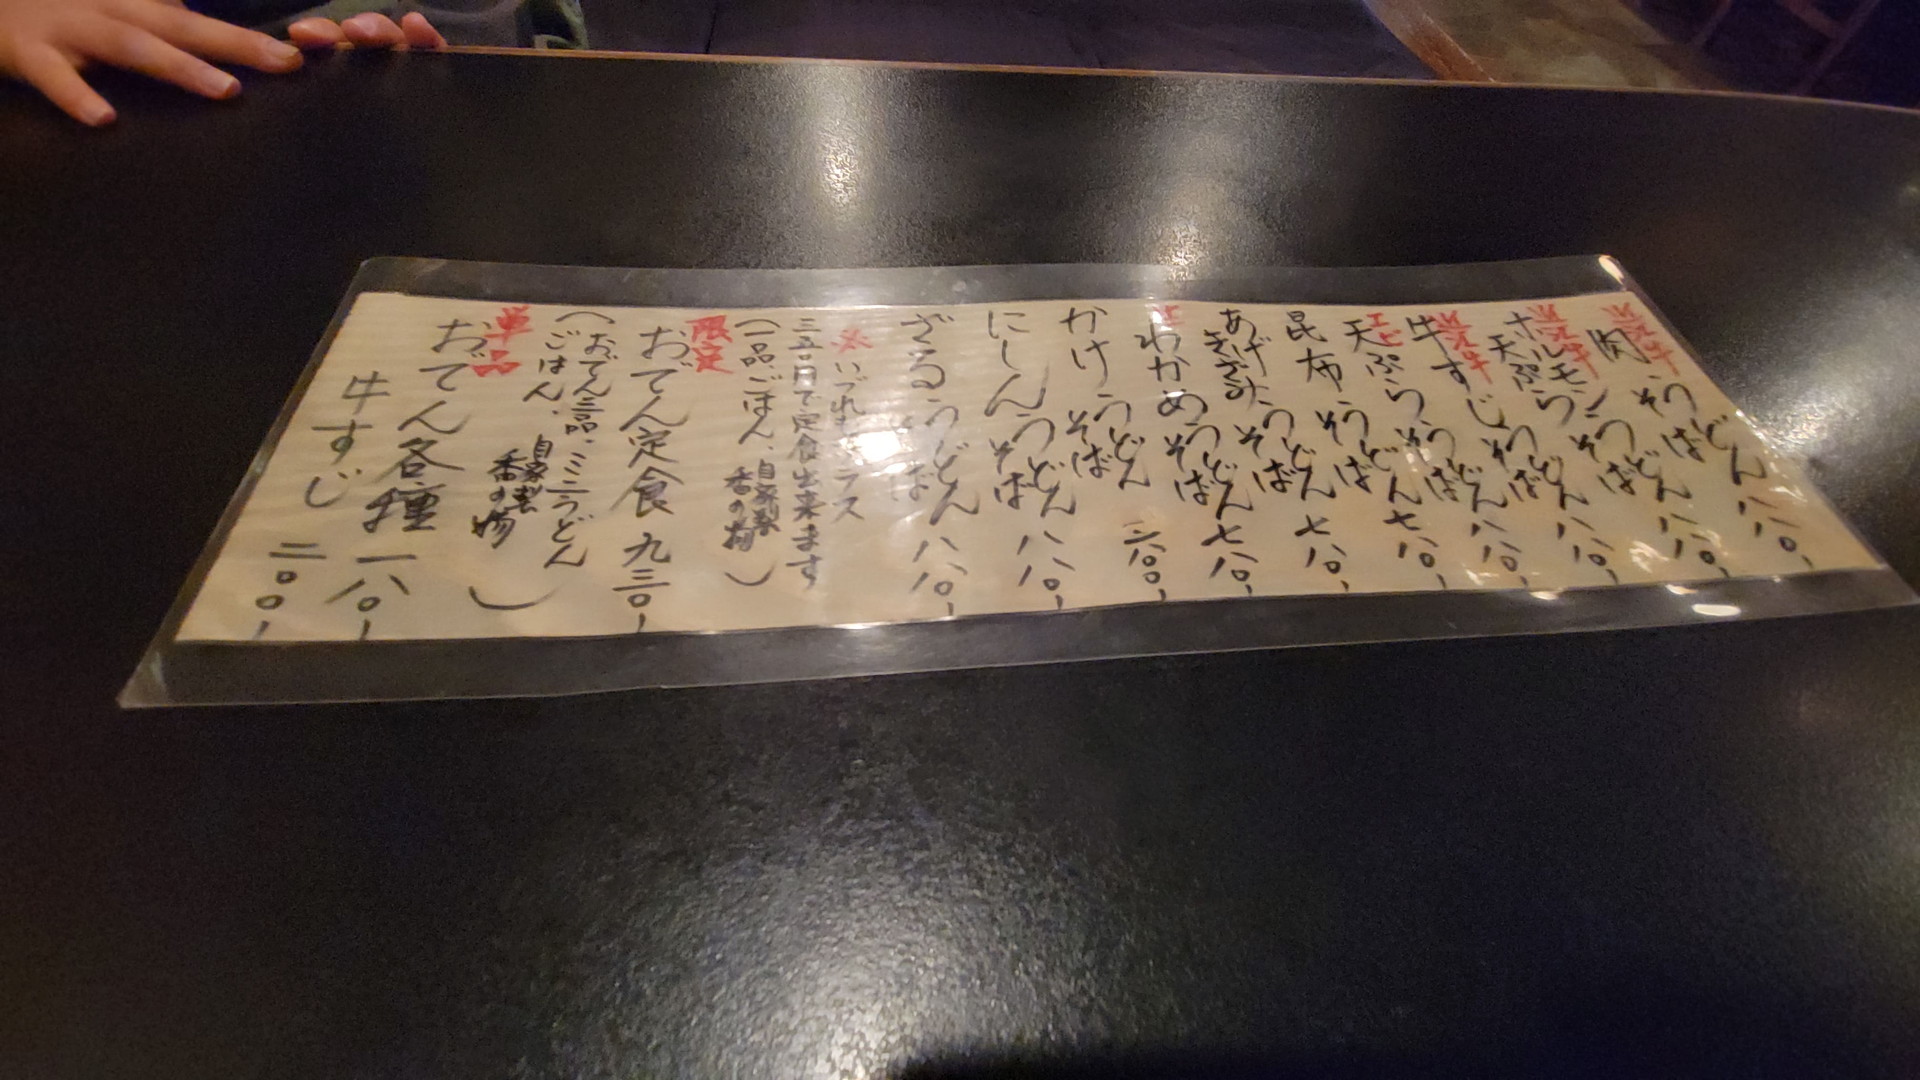 肉 うどん そば 八八〇、
ホルモン うどん そば 八八〇、
天ぷら うどん そば 八八〇、
牛すじ うどん そば 八八〇、
エビ 天ぷら うどん そば 七八〇、
昆布 うどん そば 七八〇、
あげ きざみ うどん そば 七八〇、
わかめ うどん そば
かけ うどん そば
にしん うどん そば 八八〇、
ざる うどん そば 八八〇、
※ いずれもプラス
三五〇円で定食出来ます
(一品、ごはん、自家製 香の物)
限定 おでん定食 九三〇、
(おでん三品、ミニうどん
ごはん、自家製 香の物)
単品 おでん各種 一八〇、
牛すじ 二〇〇、